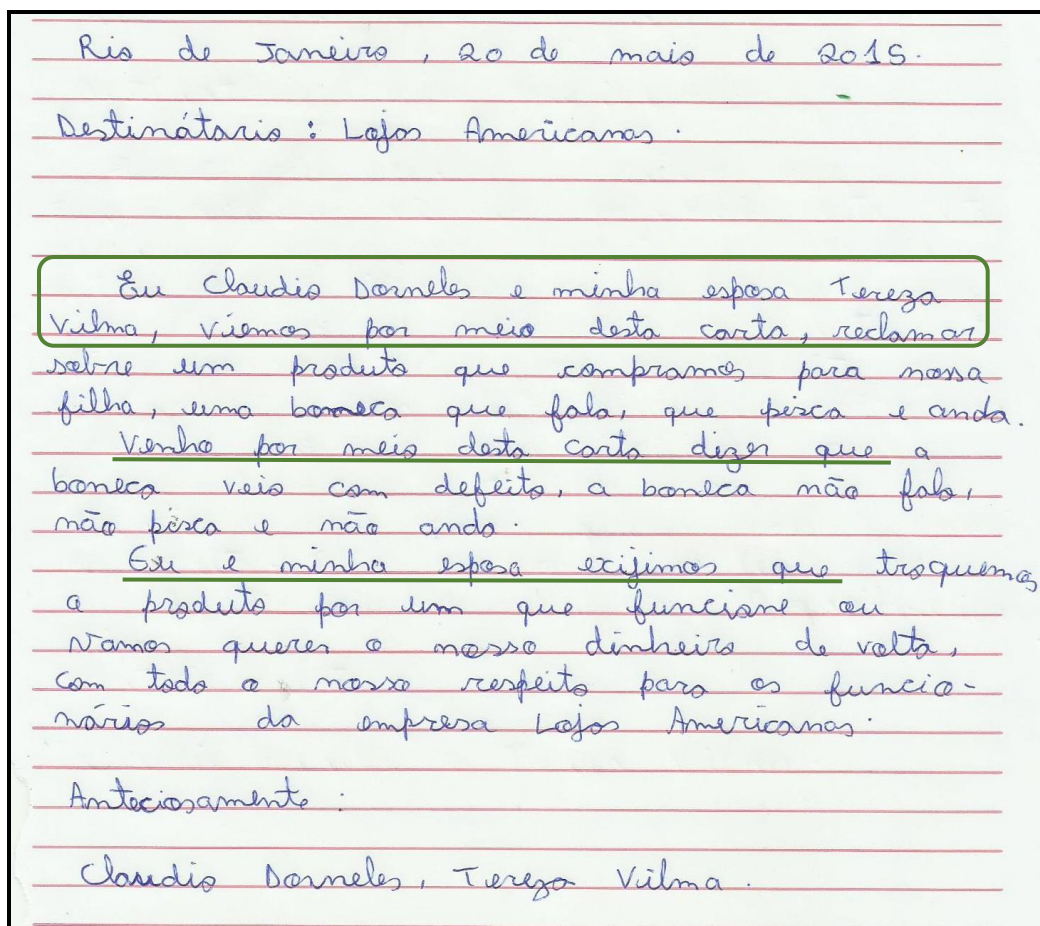 Rio de Janeiro, 20 de maio de 2015.
Destinátario: Lojas Americanas.
Eu Claudio Dorneles e minha esposa Tereza
Vilma, viemos por meio desta carta, reclamar
sobre um produto que compramos para nossa
filha, uma boneca que fala, que pisca e anda.
Venho por meio desta carta dizer que a
boneca veio com defeito, a boneca não fala,
não pisca e não anda.
Eu e minha esposa exijimos que troquemos
o produto por um que funcione ou
Vamos querer o nosso dinheiro de volta,
com todo o nosso respeito para os funcio-
nários da empresa Lojas Americanas.
Anteciosamente:
Claudio Dorneles, Tereza Vilma.